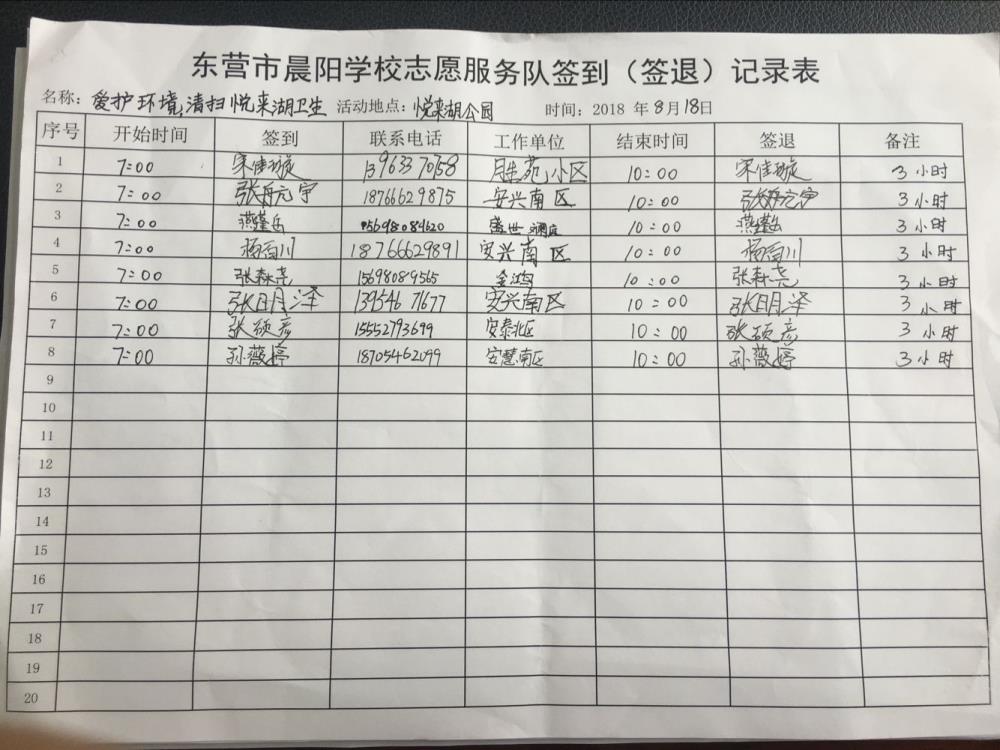 东营市晨阳学校志愿服务队签到（签退）记录表
名称：爱护环境,清扫悦来湖卫生 活动地点：悦来湖公园 时间：2018 年8月18日
序号 开始时间 签到 联系电话 工作单位 结束时间 签退 备注
1 7:00 宋佳璇 13963370758 胜苑小区 10:00 宋佳璇 3小时
2 7:00 张冉元宇 18766629875 安兴南区 10:00 张冉元宇 3小时
3 7:00 燕瑾岳 15698084620 盛世 10:00 燕瑾岳 3小时
4 7:00 杨百川 18766629891 安兴南区 10:00 杨百川 3小时
5 7:00 张森尧 15698089565 金鸿 10:00 张森尧 3小时
6 7:00 张明泽 13954671677 安兴南区 10:00 张明泽 3小时
7 7:00 张硕彦 15552793699 安泰北区 10:00 张硕彦 3小时
8 7:00 孙薇婷 18705462099 安慧南区 10:00 孙薇婷 3小时
9
10
11
12
13
14
15
16
17
18
19
20